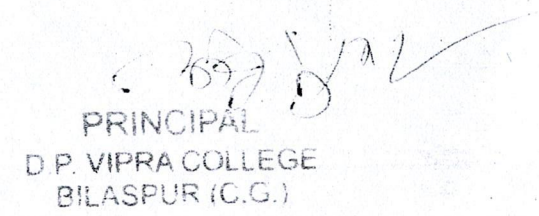 PRINCIPAL
D.P. VIPRA COLLEGE
BILASPUR (C.G.)